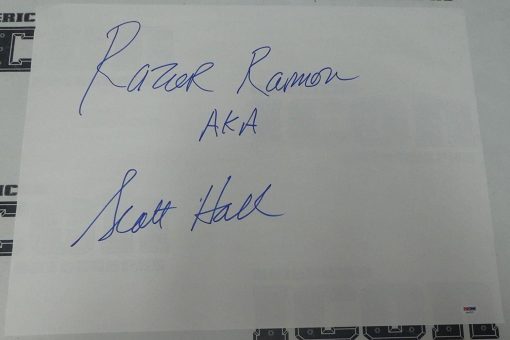 Razor Ramon
AKA
Scott Hall
ERIC
RIC